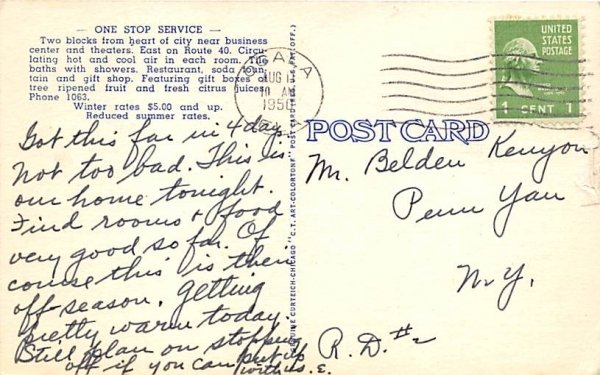 — ONE STOP SERVICE —
Two blocks from heart of city near business
center and theaters. East on Route 40. Circu-
lating hot and cool air in each room. Tile
baths with showers. Restaurant, soda foun-
tain and gift shop. Featuring gift boxes of
tree ripened fruit and fresh citrus juices.
Phone 1063.
Winter rates $5.00 and up.
Reduced summer rates.
Got this far in 4 days.
Not too bad. This is
our home tonight.
Find rooms & food
very good so far. Of
course this is their
off-season. Getting
pretty warm today.
Still plan on stopping
off if you can put up
with us. E.
GENUINE CURTEICH-CHICAGO "C.T. ART-COLORTONE" POST CARD (REG. U.S. PAT. OFF.)
OCALA
AUG
10 AM
195
UNITED
STATES
POSTAGE
1 CENT 1
POST CARD
Mr. Belden Kenyon
Penn Yan
N.Y.
R.D. #2